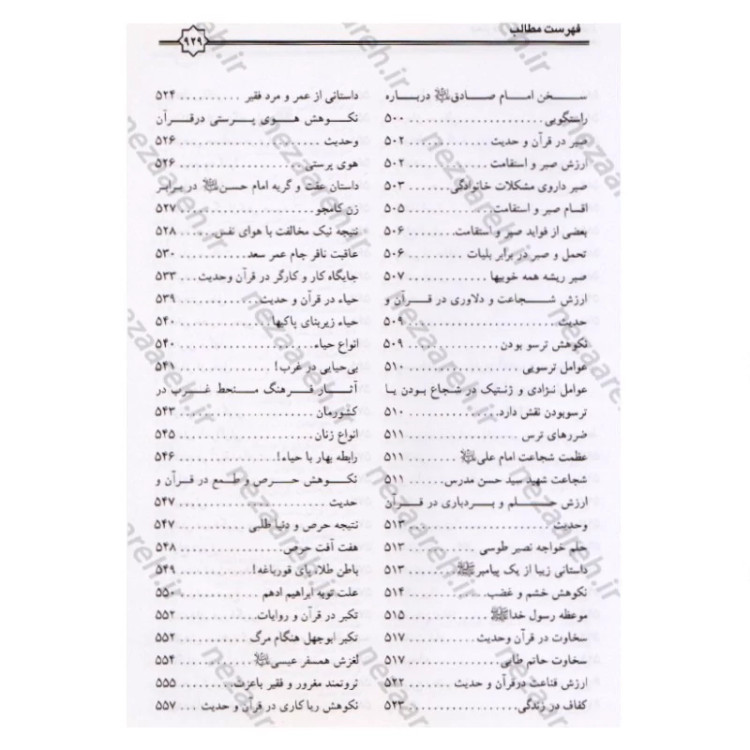 فهرست مطالب
۹۲۹
سخن امام صادق درباره
راستگویی ۵۰۰
صبر در قرآن و حدیث ۵۰۲
ارزش صبر و استقامت ۵۰۲
صبر داروی مشکلات خانوادگی ۵۰۳
اقسام صبر و استقامت ۵۰۵
بعضی از فواید صبر و استقامت ۵۰۶
تحمل و صبر در برابر بلیات ۵۰۶
صبر ریشه همه خوبیها ۵۰۷
ارزش شجاعت و دلاوری در قرآن و
حدیث ۵۰۹
نکوهش ترسو بودن ۵۰۹
عوامل ترسویی ۵۱۰
عوامل نژادی و ژنتیک در شجاع بودن یا
ترسوبودن نقش دارد. ۵۱۰
ضررهای ترس ۵۱۱
عظمت شجاعت امام علی ۵۱۱
شجاعت شهید سید حسن مدرس ۵۱۱
ارزش حلم و بردباری در قرآن
وحدیث ۵۱۳
حلم خواجه نصیر طوسی ۵۱۳
داستانی زیبا از یک پیامبر ۵۱۳
نکوهش خشم و غضب ۵۱۴
موعظه رسول خدا ۵۱۵
سخاوت در قرآن وحدیث ۵۱۷
سخاوت حاتم طایی ۵۱۷
ارزش قناعت درقرآن و حدیث ۵۲۲
کفاف در زندگی ۵۲۳
داستانی از عمر و مرد فقیر ۵۲۴
نکوهش هوی پرستی درقرآن
وحدیث ۵۲۶
هوی پرستی ۵۲۶
داستان عفت و گریه امام حسن در برابر
زن کامجو ۵۲۷
نتیجه نیک مخالفت با هوای نفس ۵۲۸
عاقبت نافر جام عمر سعد ۵۳۰
جایگاه کار و کارگر در قرآن وحدیث ۵۳۳
حیاء در قرآن و حدیث ۵۳۹
حیاء زیربنای پاکیها ۵۴۰
انواع حیاء ۵۴۰
بی‌حیایی در غرب! ۵۴۱
آثار فرهنگ منحط غرب در
کشورمان ۵۴۳
انواع زنان ۵۴۵
رابطه بهار با حیاء! ۵۴۶
نکوهش حرص و طمع در قرآن و
حدیث ۵۴۷
نتیجه حرص و دنیا طلبی ۵۴۷
هفت آفت حرص ۵۴۸
باطن طلا، پای قورباغه! ۵۴۹
علت توبه ابراهیم ادهم ۵۵۰
تکبر در قرآن و روایات ۵۵۲
تکبر ابوجهل هنگام مرگ ۵۵۲
لغزش همسفر عیسی ۵۵۴
ثروتمند مغرور و فقیر باعزت ۵۵۵
نکوهش ریاکاری در قرآن و حدیث ۵۵۷
nezaareh.ir